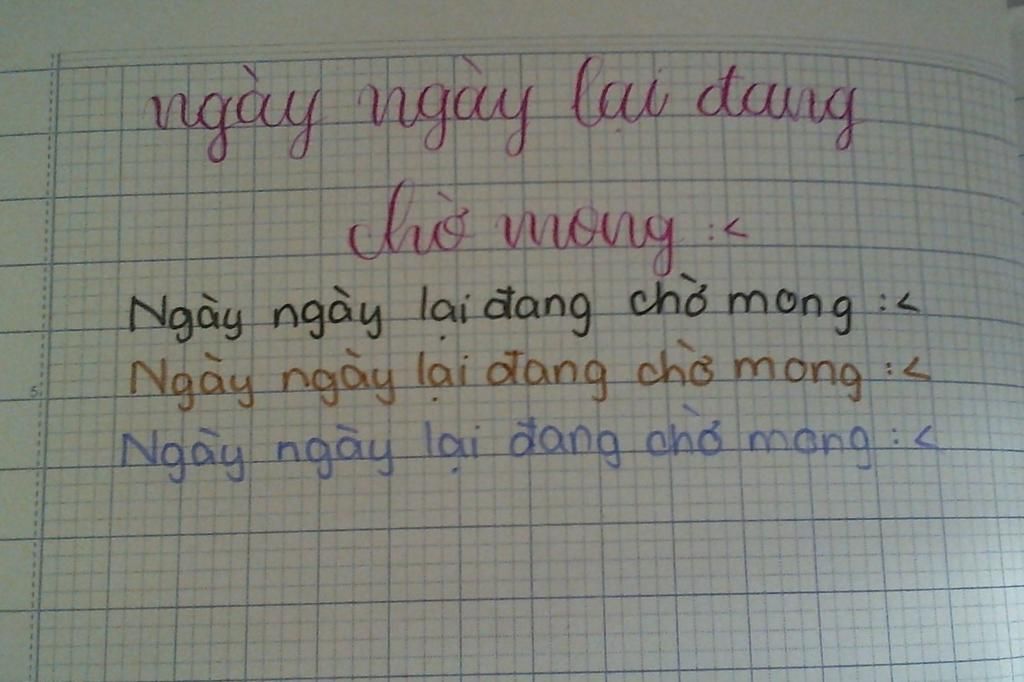 ngày ngày lại đang
chờ mong :<
Ngày ngày lại đang chờ mong :<
Ngày ngày lại đang chờ mong :<
Ngày ngày lại đang chờ mong :<
5